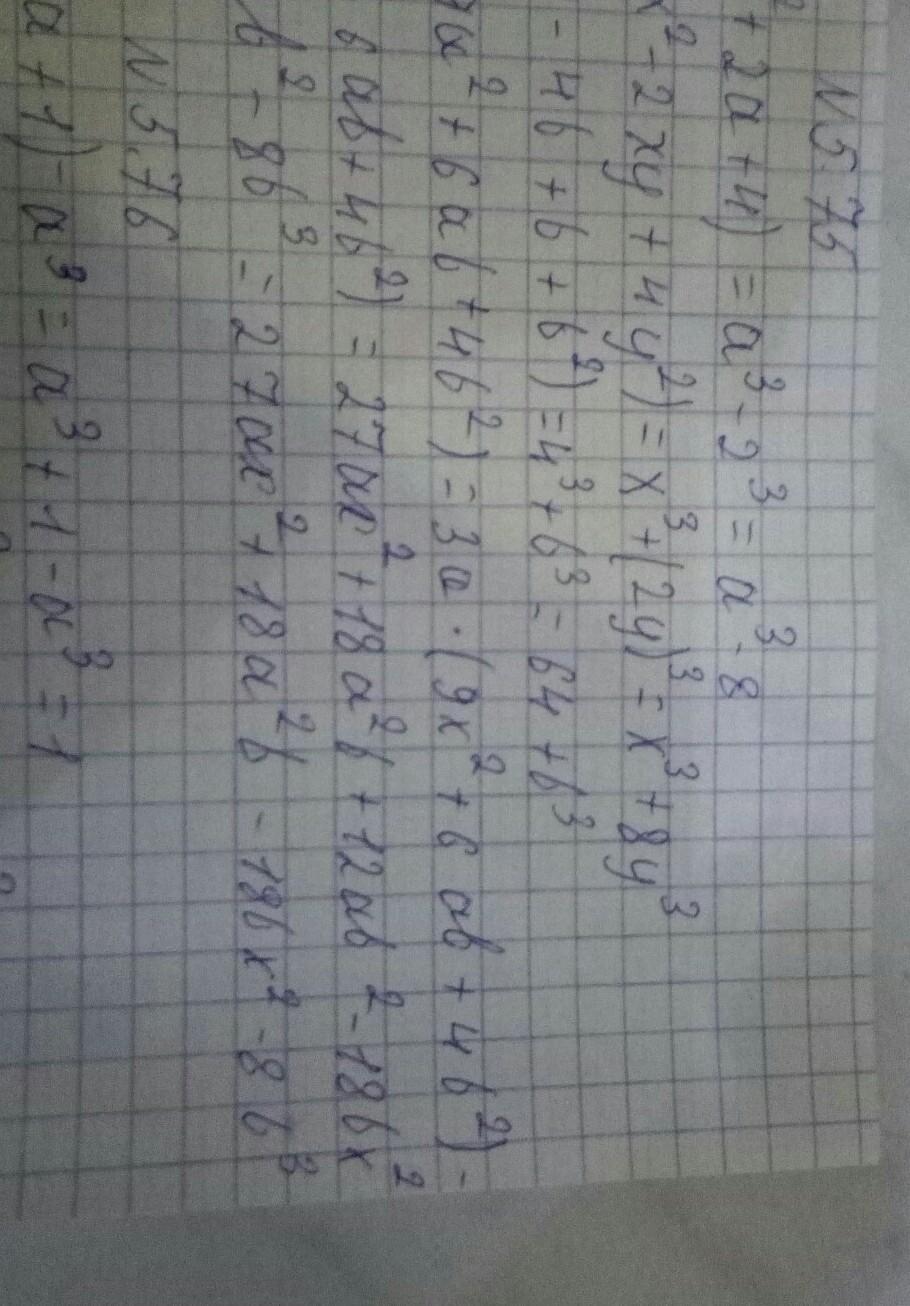 N 5.75
+ 2a + 4) = a³ - 2³ = a³ - 8
x² - 2xy + 4y²) = x³ + (2y)³ = x³ + 8y³
- 4b + b + b²) = 4³ + b³ = 64 + b³
9x² + 6ab + 4b²) = 3a · (9x² + 6ab + 4b²) -
6ab + 4b²) = 27ax² + 18a²b + 12ab² - 18bx²
b² - 8b³ = 27ax² + 18a²b - 18bx² - 8b³
N 5.76
a + 1) - a³ = a³ + 1 - a³ = 1